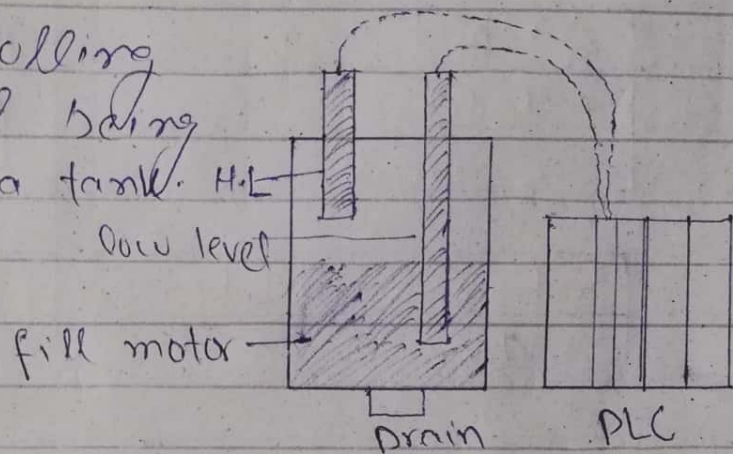 olling
being
a tank. H.L
low level
fill motor
Drain
PLC